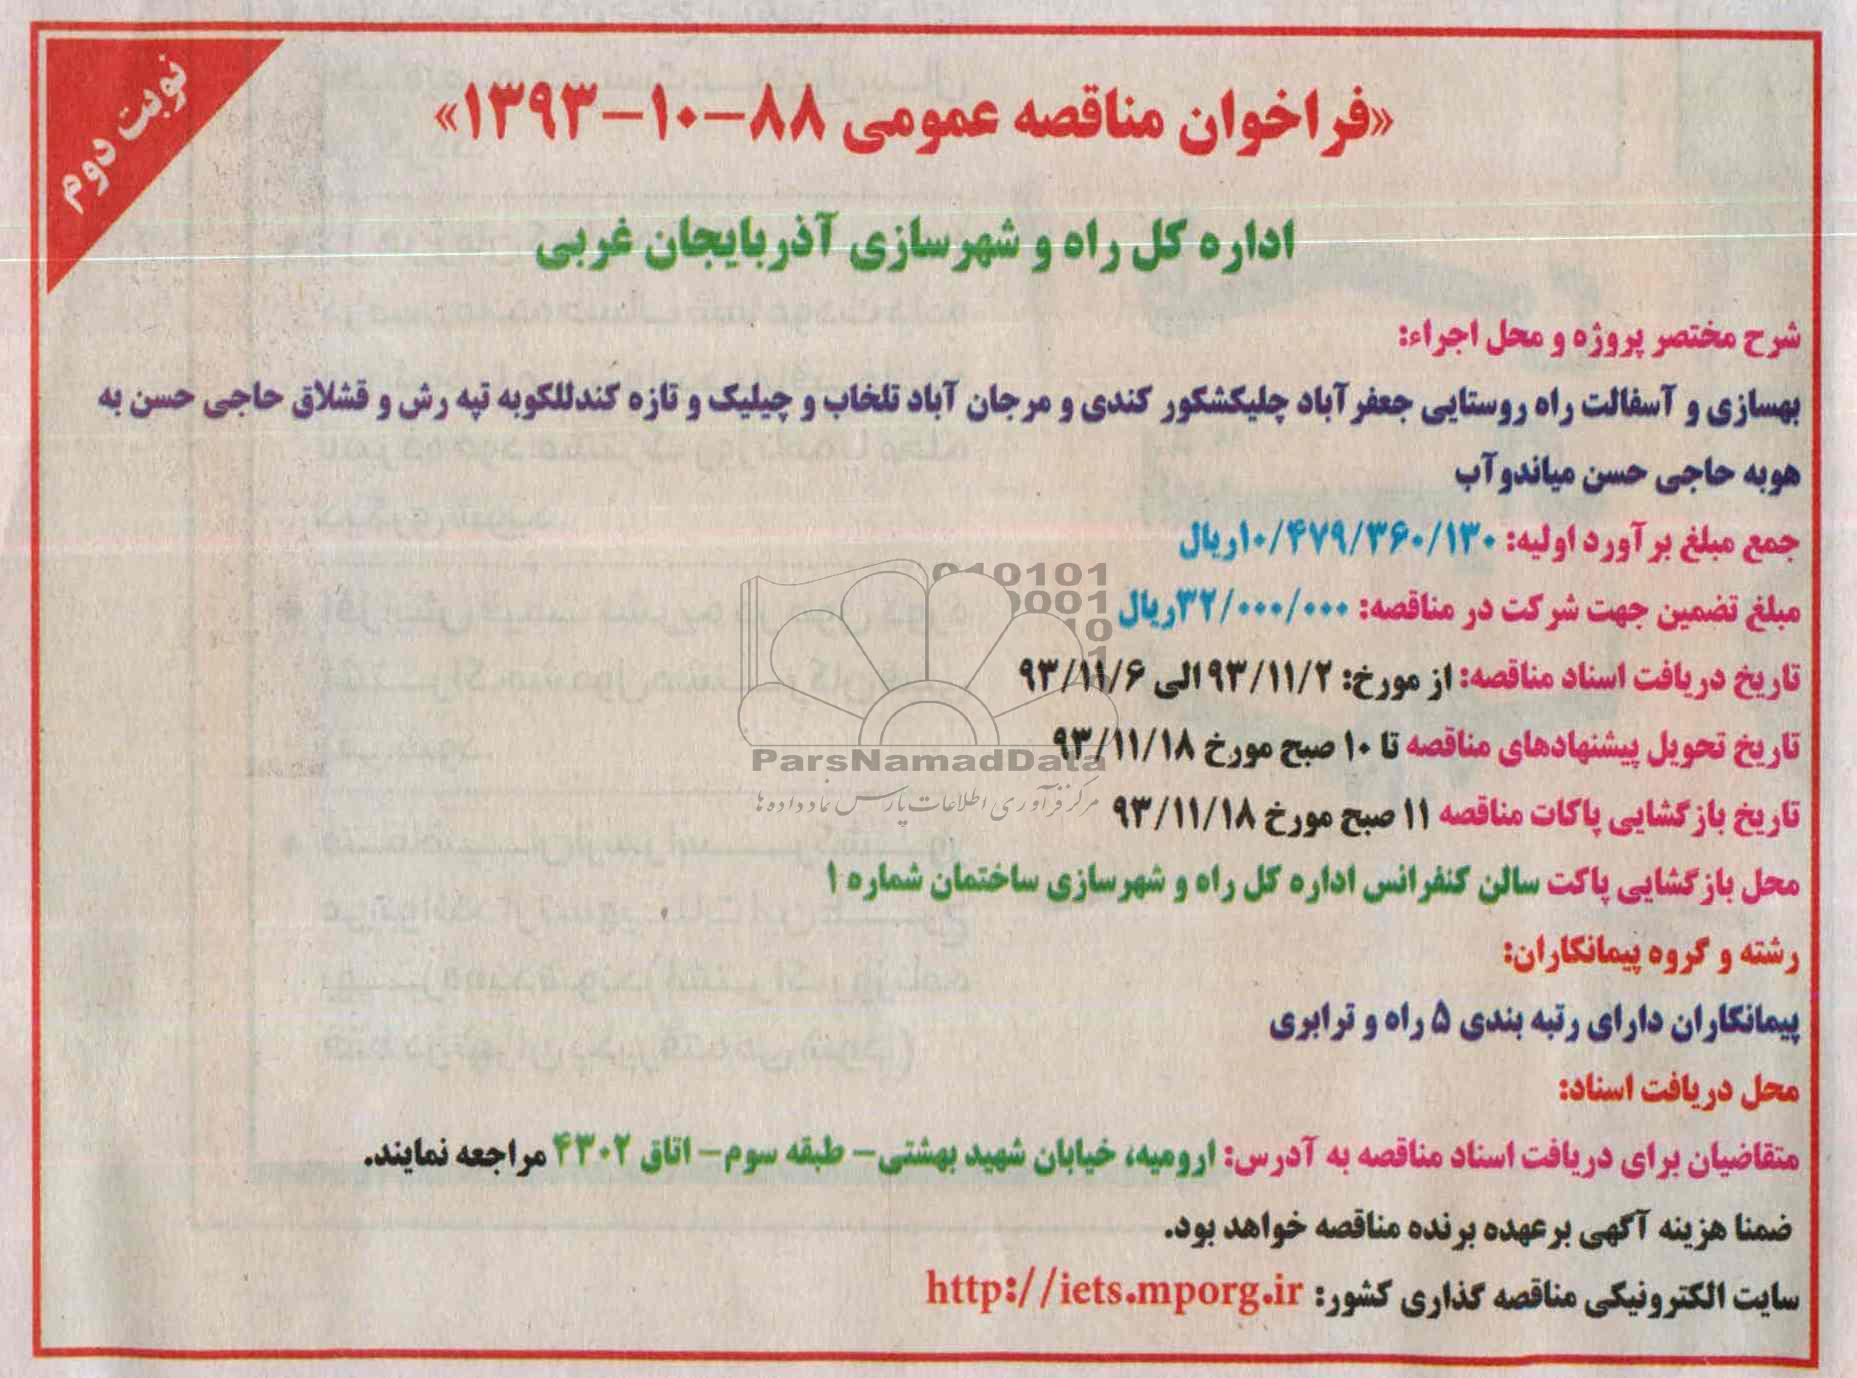 نوبت دوم
«فراخوان مناقصه عمومی ۸۸-۱۰-۱۳۹۳»
اداره کل راه و شهرسازی آذربایجان غربی
شرح مختصر پروژه و محل اجراء:
بهسازی و آسفالت راه روستایی جعفرآباد چلیکشکور کندی و مرجان آباد تلخاب و چیلیک و تازه کندللکوبه تپه رش و قشلاق حاجی حسن به
هوبه حاجی حسن میاندوآب
جمع مبلغ برآورد اولیه: ۱۰/۴۷۹/۳۶۰/۱۳۰ریال
مبلغ تضمین جهت شرکت در مناقصه: ۳۲/۰۰۰/۰۰۰ریال
تاریخ دریافت اسناد مناقصه: از مورخ: ۹۳/۱۱/۲الی ۹۳/۱۱/۶
تاریخ تحویل پیشنهادهای مناقصه تا ۱۰ صبح مورخ ۹۳/۱۱/۱۸
تاریخ بازگشایی پاکات مناقصه ۱۱ صبح مورخ ۹۳/۱۱/۱۸
محل بازگشایی پاکت سالن کنفرانس اداره کل راه و شهرسازی ساختمان شماره ۱
رشته و گروه پیمانکاران:
پیمانکاران دارای رتبه بندی ۵ راه و ترابری
محل دریافت اسناد:
متقاضیان برای دریافت اسناد مناقصه به آدرس: ارومیه، خیابان شهید بهشتی- طبقه سوم- اتاق ۴۳۰۲ مراجعه نمایند.
ضمنا هزینه آگهی برعهده برنده مناقصه خواهد بود.
سایت الکترونیکی مناقصه گذاری کشور: http://iets.mporg.ir
ParsNamadData
مرکز فرآوری اطلاعات پارس نماد داده ها